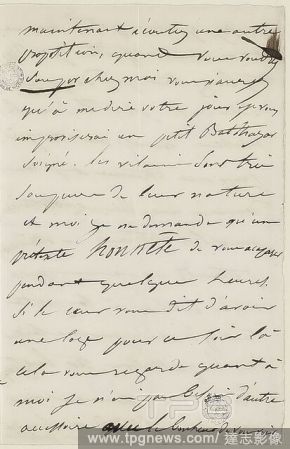 maintenant écoutez une autre
proposition, quand vous voudrez
souper chez moi vous n'aurez
qu'à me dire votre jour je vous
improviserai un petit Balthazar
soigné. les vilains sont très
soupeurs de leur nature
et moi je ne demande qu'un
prétexte honnête de vous
pendant quelques heures.
Si le cœur vous dit d'avoir
une loge pour ce soir là
cela vous regarde quant à
moi je n'ai pas besoin d'autre
accessoire avec le bonheur de vous
www.tpgnews.com/ 達志影像
TPG